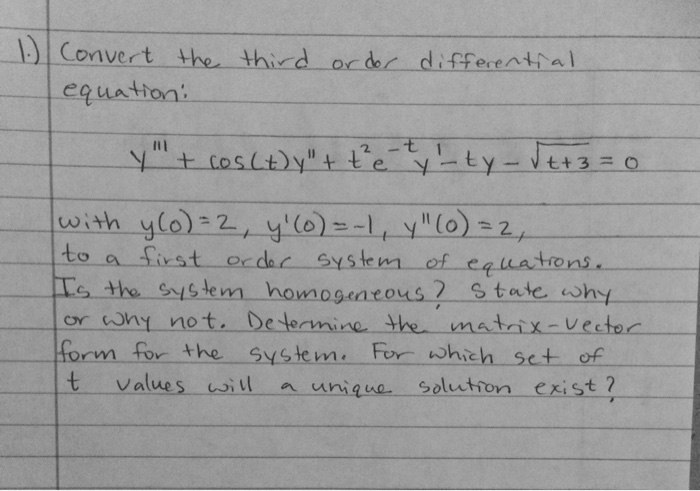 1.) Convert the third order differential
equation:
y''' + cos(t)y" + t²e⁻ᵗy' - ty - √t+3 = 0
with y(0)=2, y'(0)=-1, y"(0)=2,
to a first order system of equations.
Is the system homogeneous? State why
or why not. Determine the matrix-vector
form for the system. For which set of
t values will a unique solution exist?